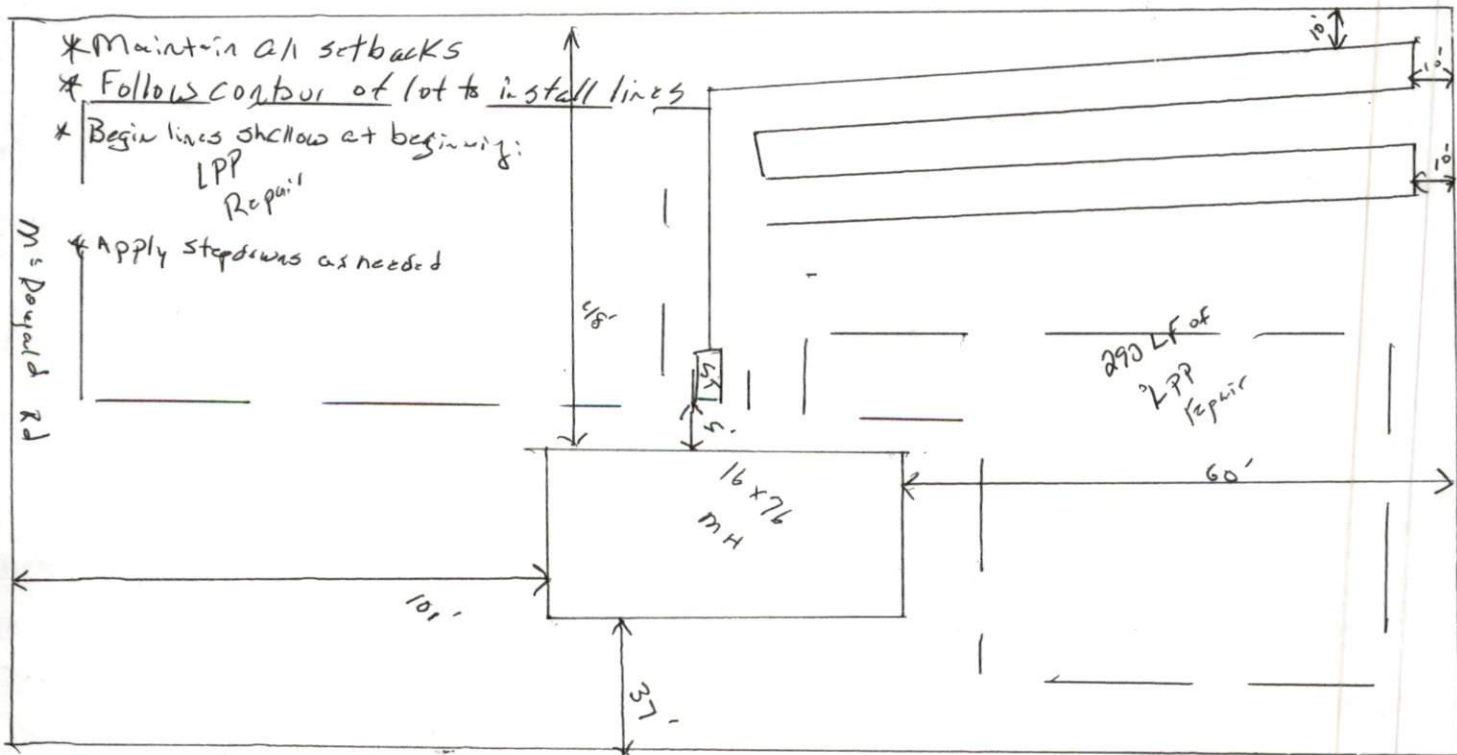 *Maintain all setbacks
* Follow contour of lot to install lines
* Begin lines shallow at beginning:
LPP
Repair
* Apply stepdowns as needed
10'
10'
10'
ST
5'
290 LF of
LPP
repair
16 x 76
MH
60'
37'
Rd